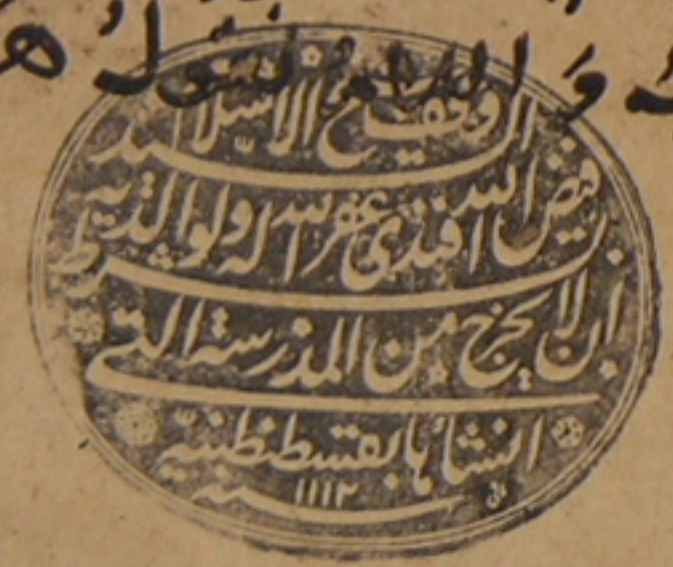 و الله لسول ه
وقف شيخ الاسلام السيد
فيض الله افندى غفر الله له ولوالديه
بشرط ان لا يخرج من المدرسة التى
انشأها بقسطنطنيّة
سنة ١١١٢